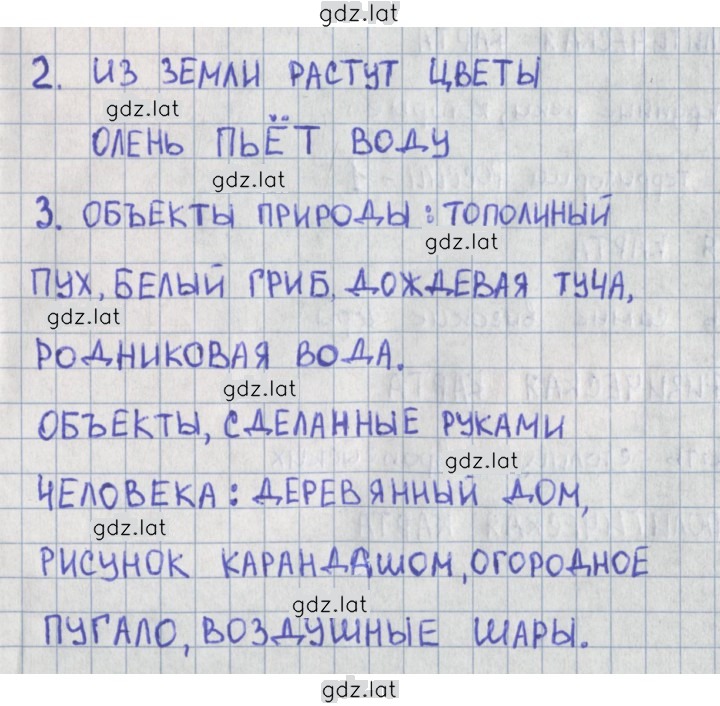 gdz.lat
2. ИЗ ЗЕМЛИ РАСТУТ ЦВЕТЫ
gdz.lat
ОЛЕНЬ ПЬЁТ ВОДУ
gdz.lat
3. ОБЪЕКТЫ ПРИРОДЫ: ТОПОЛИНЫЙ
gdz.lat
ПУХ, БЕЛЫЙ ГРИБ, ДОЖДЕВАЯ ТУЧА,
gdz.lat
РОДНИКОВАЯ ВОДА.
gdz.lat
ОБЪЕКТЫ, СДЕЛАННЫЕ РУКАМИ
gdz.lat
ЧЕЛОВЕКА: ДЕРЕВЯННЫЙ ДОМ,
gdz.lat
РИСУНОК КАРАНДАШОМ, ОГОРОДНОЕ
gdz.lat
ПУГАЛО, ВОЗДУШНЫЕ ШАРЫ.
gdz.lat